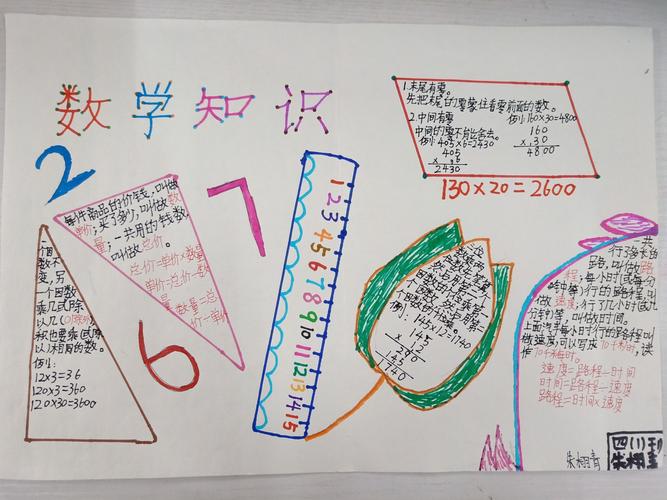 数学知识
2
1.末尾有零。
先把末尾的零蒙住看零前面的数。
2.中间有零
例:160×30=4800
中间的零不能舍去。
例:405×6=2430
405
× 6
2430
160
×.30
4800
130×20=2600
每件商品的价钱,叫做
单价;买了多少,叫做数
量;一共用的钱数,
叫做总价。
总价=单价×数量
单价=总价÷数量
数量=总
价÷单价
7
6
1 2 3 4 5 6 7 8 9 10 11 12 13 14 15
一个因
数不
变,另
一个因数
乘几或除
以几(0除外)
积也要乘(或除
以)相同的数。
例:
12×3=36
120×3=360
120×30=3600
例:145×12=1740
145
× 12
290
145
1740
一共
行了多长的
路,叫做路
程;每小时(或每分
钟等)行的路程,叫
做速度;行了几小时(或几
分钟等),叫做时间。
上面汽车每小时行的路程叫
做速度,可以写成70千米/时,读
作70千米每时。
速度=路程÷时间
时间=路程÷速度
路程=时间×速度
朱栩青
四(1)刊
朱栩青